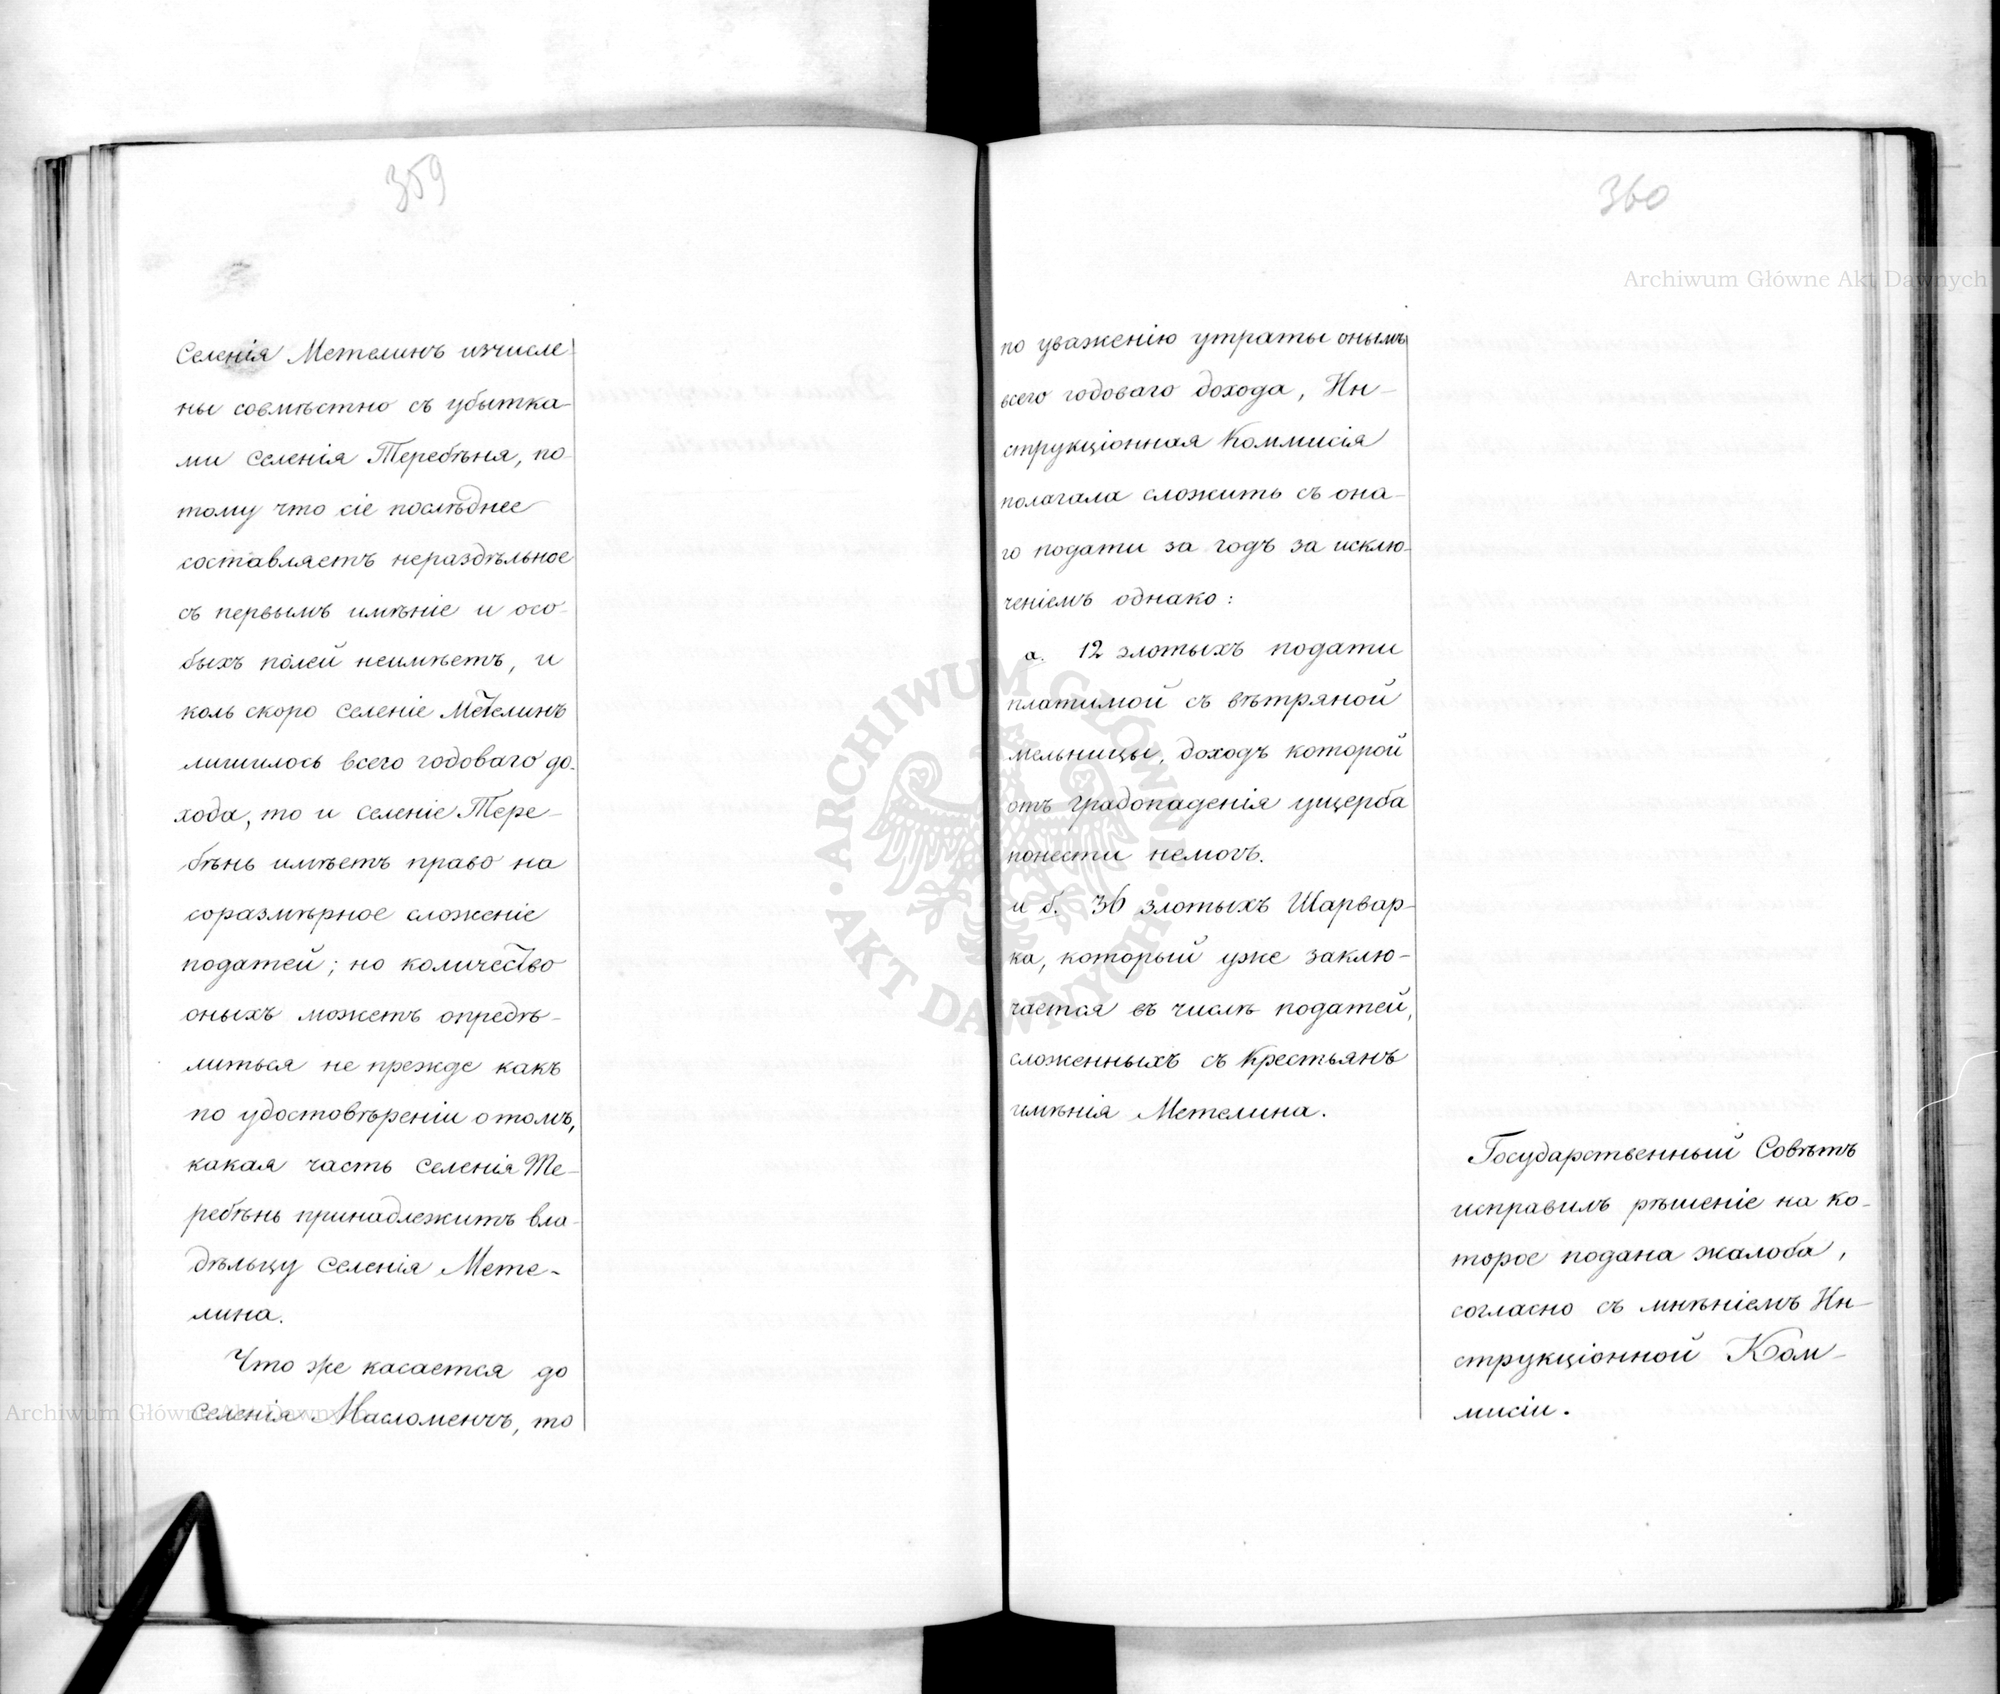 359
Селенія Метелинъ изчисле-
ны совмѣстно съ убытка-
ми селенія Теребѣня, по-
тому что сіе послѣднее
составляетъ нераздѣльное
съ первымъ имѣніе и осо-
быхъ полей неимѣетъ, и
коль скоро селеніе Метелинъ
лишилось всего годоваго до-
хода, то и селеніе Тере-
бѣнь имѣетъ право на
соразмѣрное сложеніе
податей; но количество
оныхъ можетъ опредѣ-
литься не прежде какъ
по удостовѣреніи о томъ,
какая часть селенія Те-
ребѣнь принадлежитъ вла-
дѣльцу селенія Мете-
лина.
Что же касается до
селенія Масломенчъ, то
360
по уваженію утраты онымъ
всего годоваго дохода, Ин-
струкціонная Коммисія
полагала сложить съ она-
го подати за годъ за исклю-
ченіемъ однако:
а. 12 злотыхъ подати
платимой съ вѣтряной
мельницы, доходъ которой
отъ градопаденія ущерба
понести немогъ.
и б. 36 злотыхъ Шарвар-
ка, который уже заклю-
чается въ числѣ податей,
сложенныхъ съ Крестьянъ
имѣнія Метелина.
Государственный Совѣтъ
исправилъ рѣшеніе на ко-
торое подана жалоба,
согласно съ мнѣніемъ Ин-
струкціонной Ком-
мисіи.
Archiwum Główne Akt Dawnych
Archiwum Główne Akt Dawnych
ARCHIWUM GŁÓWNE
AKT DAWNYCH